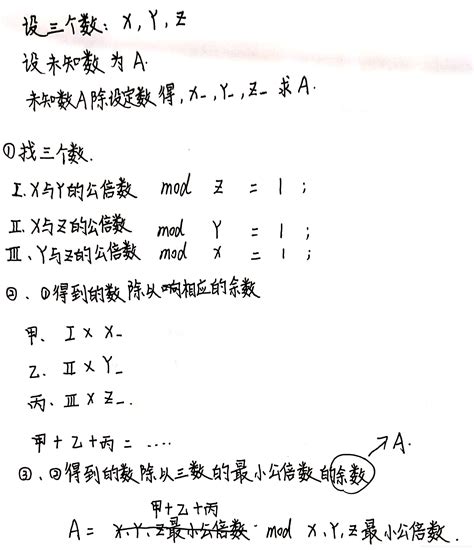 设三个数: X, Y, Z
设未知数为A.
未知数A除设定数得, X_, Y_, Z_ 求A.
①找三个数.
I. X与Y的公倍数 mod Z = 1 ;
II. X与Z的公倍数 mod Y = 1 ;
III、Y与Z的公倍数 mod X = 1 ;
②、①得到的数除以相应的余数
甲、 I × X_
乙. II × Y_
丙. III × Z_.
甲 + 乙 + 丙 = ....
→A.
③、②得到的数除以三数的最小公倍数的余数
甲+乙+丙
A = X、Y、Z最小公倍数 · mod X、Y、Z最小公倍数.